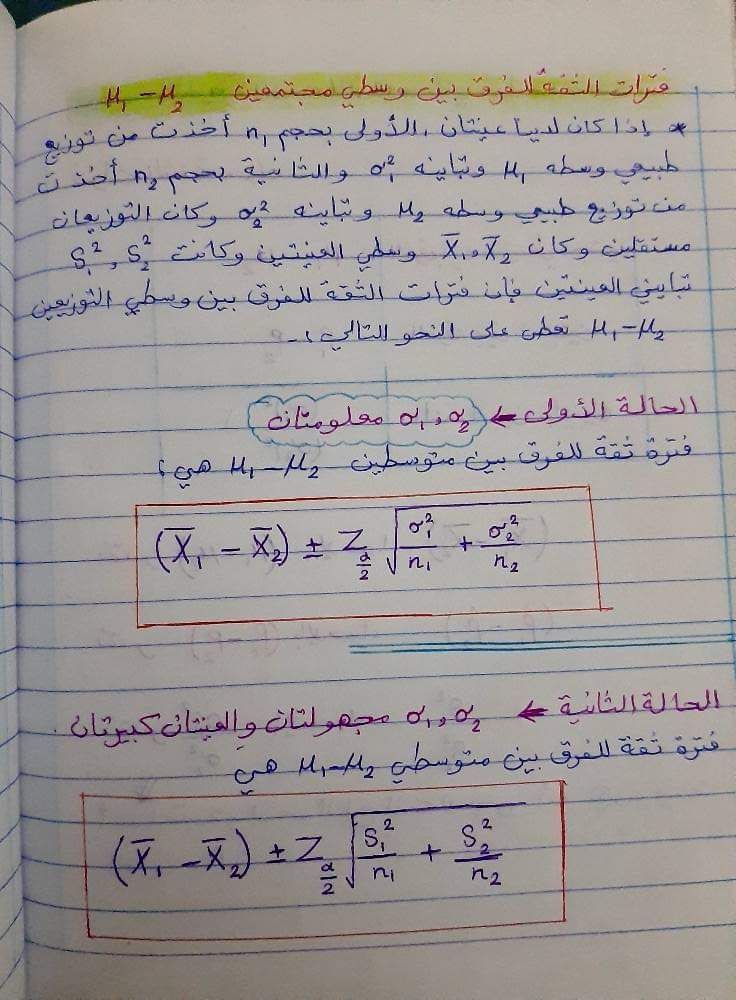 فترات الثقة للفرق بين وسطي مجتمعين μ₁ - μ₂
* إذا كان لدينا عينتان، الأولى بحجم n₁ أخذت من توزيع
طبيعي وسطه μ₁ وتباينه σ₁² والثانية بحجم n₂ أخذت
من توزيع طبيعي وسطه μ₂ وتباينه σ₂² وكان التوزيعان
مستقلين وكان X̄₁, X̄₂ وسطي العينتين وكانت S₁², S₂²
تبايني العينتين فإن فترات الثقة للفرق بين وسطي التوزيعين
μ₁-μ₂ تعطى على النحو التالي :-
الحالة الأولى ← σ₁, σ₂ معلومتان
فترة ثقة للفرق بين متوسطين μ₁-μ₂ هي :
(X̄₁ - X̄₂) ± Z_{α/2} √(σ₁²/n₁ + σ₂²/n₂)
الحالة الثانية ← σ₁, σ₂ مجهولتان والعينتان كبيرتان.
فترة ثقة للفرق بين متوسطي μ₁-μ₂ هي
(X̄₁ - X̄₂) ± Z_{α/2} √(S₁²/n₁ + S₂²/n₂)